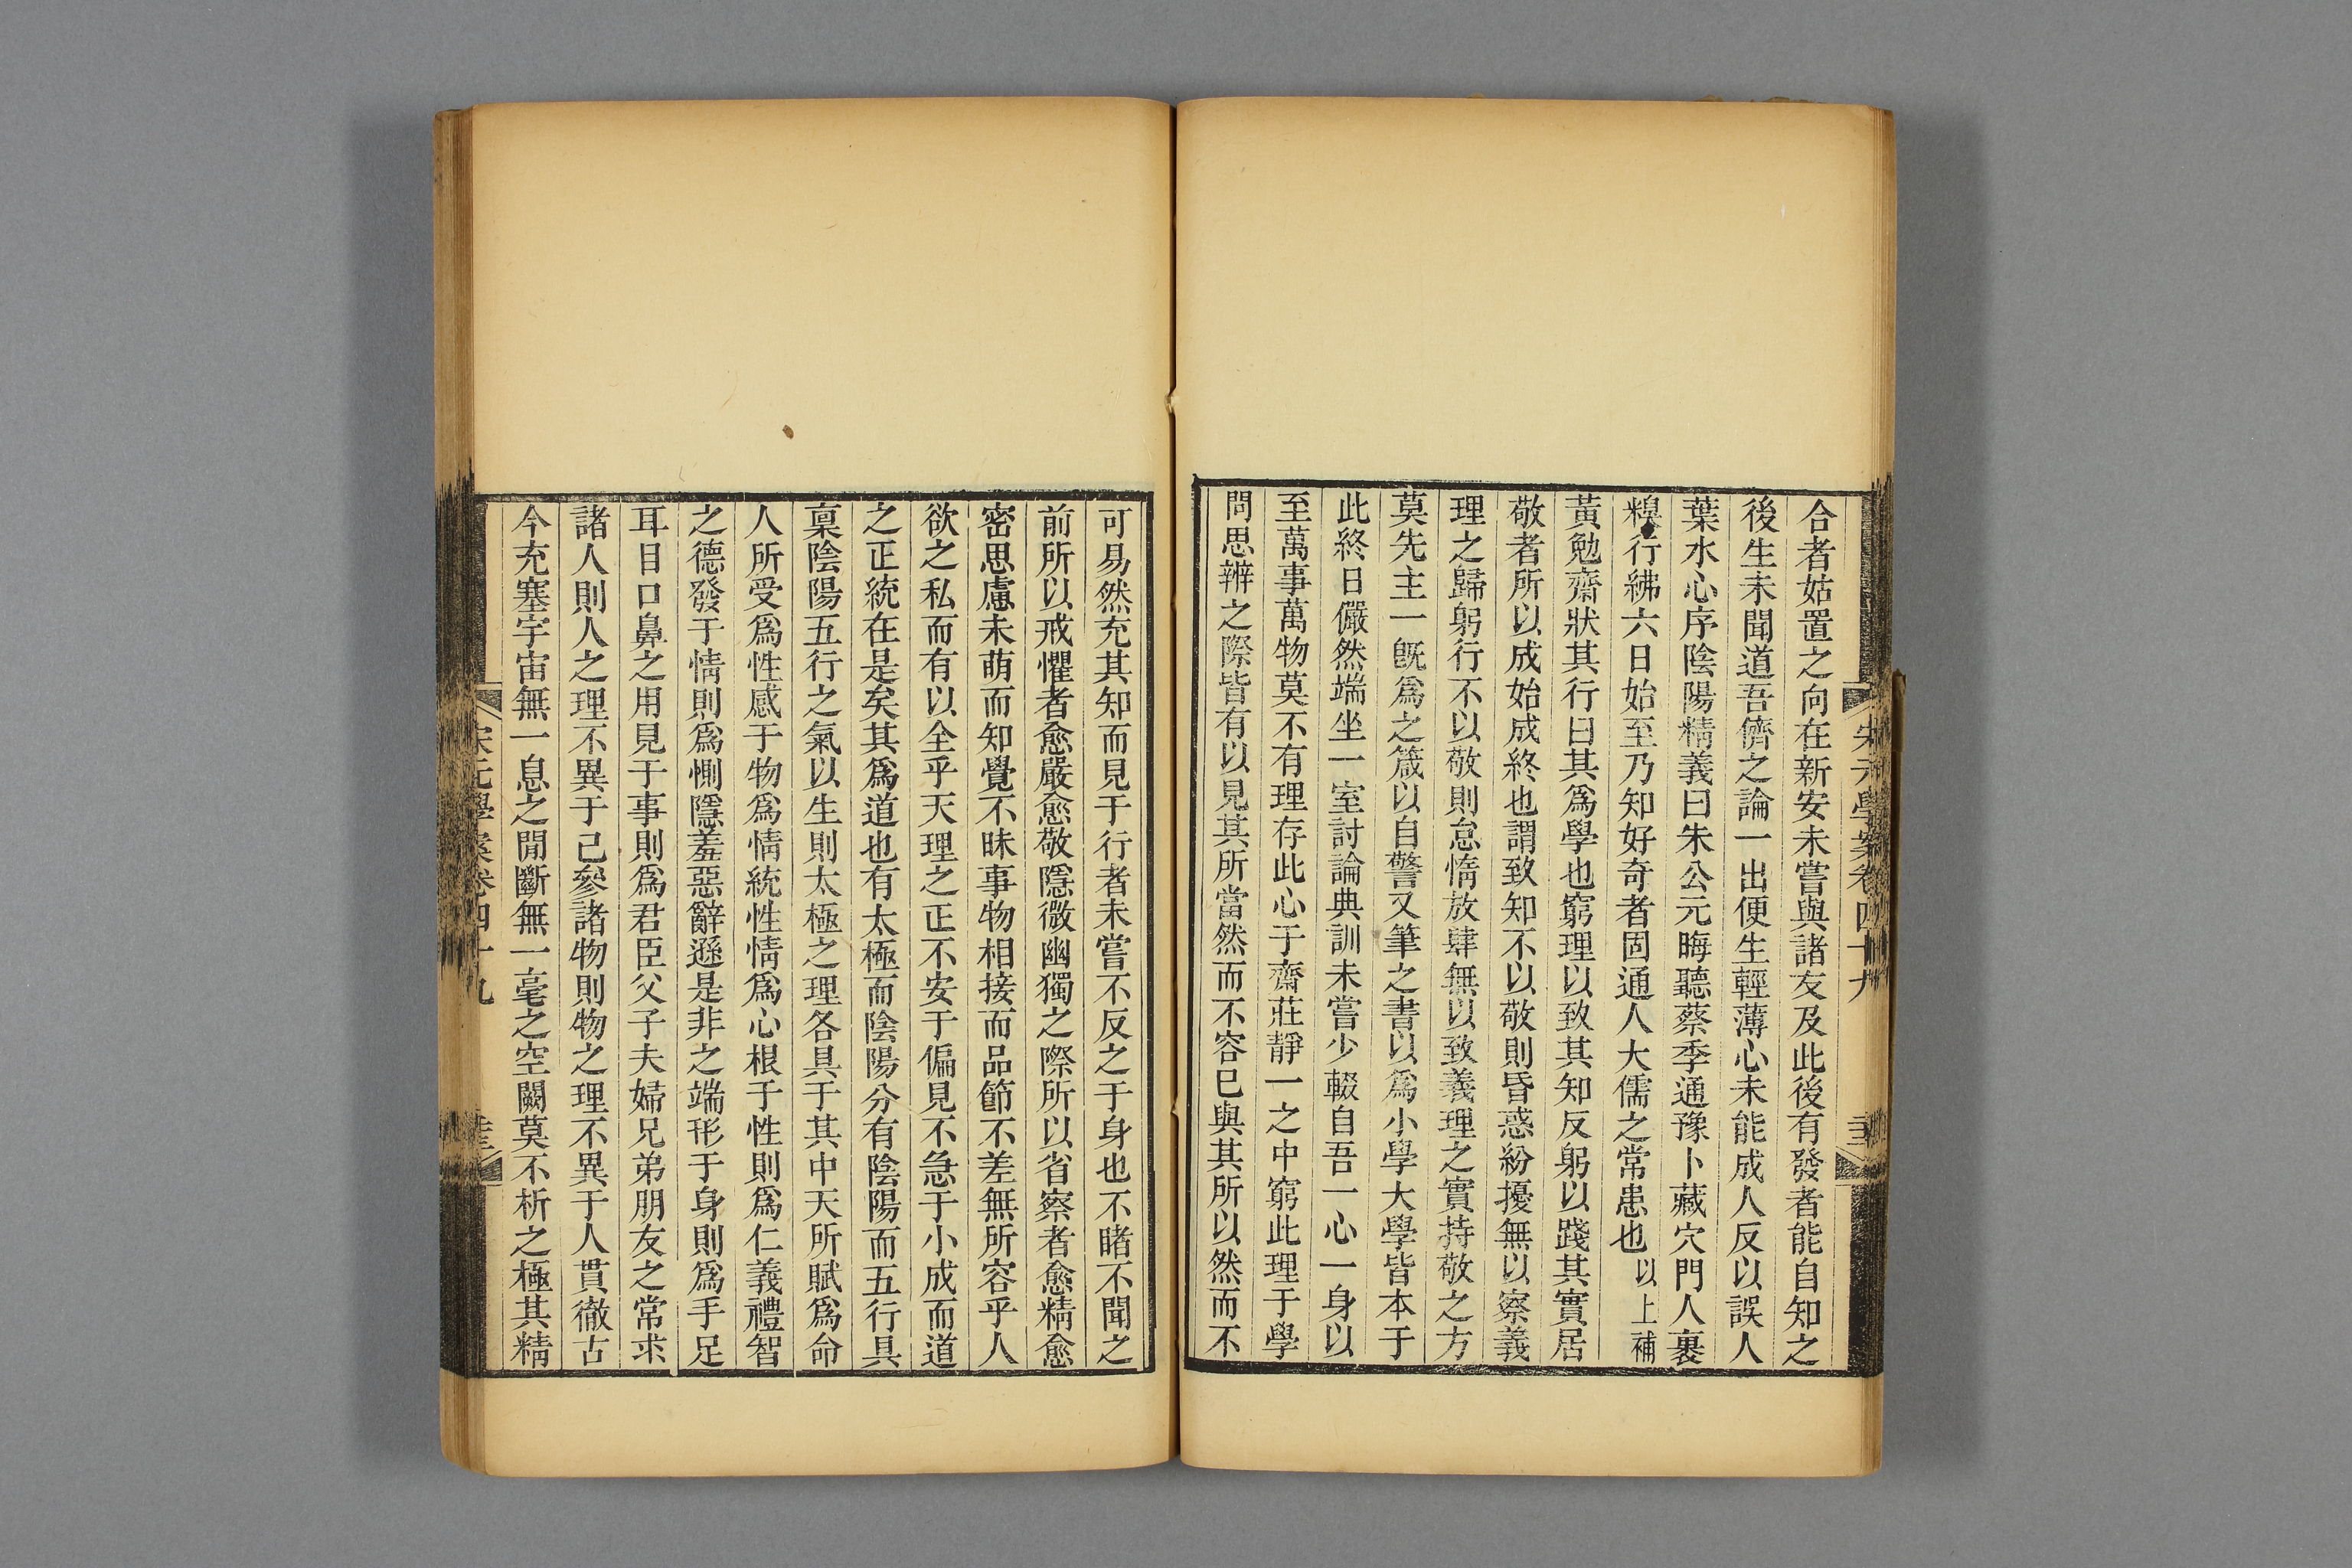 合者姑置之向在新安未嘗與諸友及此後有發者能自知之
後生未聞道吾儕之論一出便生輕薄心未能成人反以誤人
葉水心序陰陽精義曰朱公元晦聽蔡季通豫卜藏穴門人裹
糗行紼六日始至乃知好奇者固通人大儒之常患也以上補
黃勉齋狀其行曰其爲學也窮理以致其知反躬以踐其實居
敬者所以成始成終也謂致知不以敬則昏惑紛擾無以察義
理之歸躬行不以敬則怠惰放肆無以致義理之實持敬之方
莫先主一旣爲之箴以自警又筆之書以爲小學大學皆本于
此終日儼然端坐一室討論典訓未嘗少輟自吾一心一身以
至萬事萬物莫不有理存此心于齋莊靜一之中窮此理于學
問思辨之際皆有以見其所當然而不容已與其所以然而不
宋元學案卷四十九
可易然充其知而見于行者未嘗不反之于身也不睹不聞之
前所以戒懼者愈嚴愈敬隱微幽獨之際所以省察者愈精愈
密思慮未萌而知覺不昧事物相接而品節不差無所容乎人
欲之私而有以全乎天理之正不安于偏見不急于小成而道
之正統在是矣其爲道也有太極而陰陽分有陰陽而五行具
稟陰陽五行之氣以生則太極之理各具于其中天所賦爲命
人所受爲性感于物爲情統性情爲心根于性則爲仁義禮智
之德發于情則爲惻隱羞惡辭遜是非之端形于身則爲手足
耳目口鼻之用見于事則爲君臣父子夫婦兄弟朋友之常求
諸人則人之理不異于己參諸物則物之理不異于人貫徹古
今充塞宇宙無一息之閒斷無一毫之空闕莫不析之極其精
宋元學案卷四十九